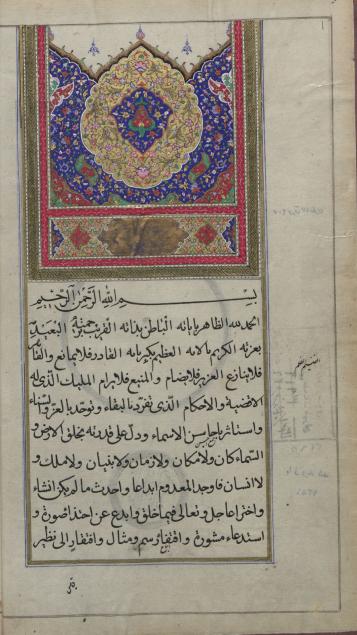 بسم الله الرحمن الرحيم
الحمد لله الظاهر باياته الباطن بذاته القريب برحمته البعيد
بعزته الكريم بالائه العظيم بكبريائه القادر فلا يمانع والقاهر
فلا ينازع العزيز فلا يضام و المنيع فلا يرام المليك الذى له
الاقضية والاحكام الذى تفرد بالبقاء وتوحد بالعز والسناء
واستاثر باحاسن الاسماء ودل على قدرته بخلق الارض و
السماء كان ولا مكان ولا زمان ولا بنيان ولا ملك و
لا انسان فاوجد المعدوم ابداعا واحدث ما لم يكن انشاء
واختراعا جل وتعالى فيما خلق وابدع عن احتذاء صورة و
استدعاء مشورة و اقتفاء رسم ومثال و افتقار الى نظير